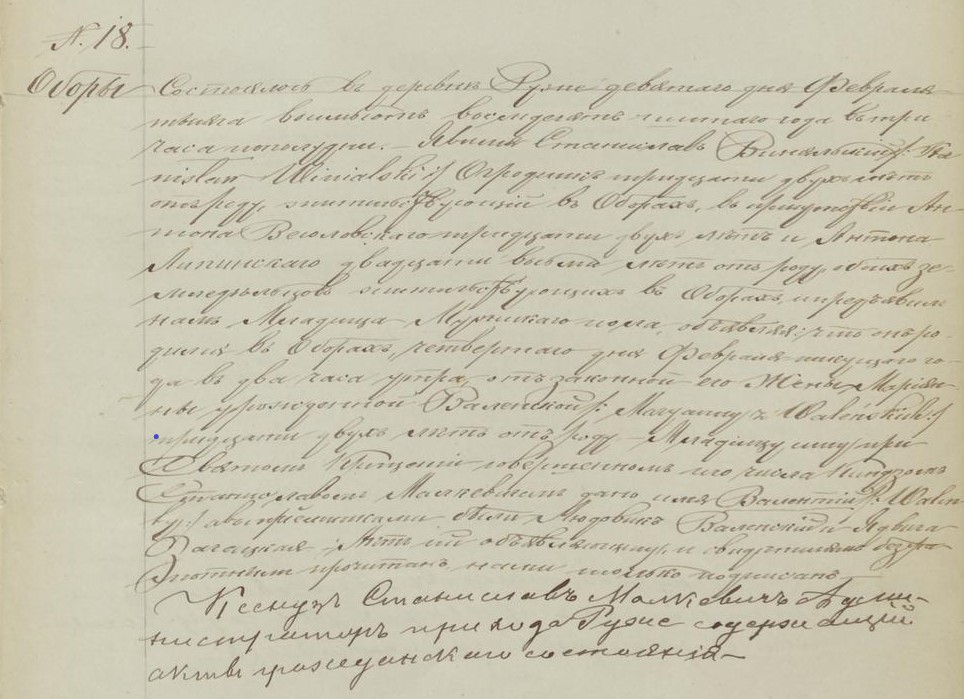 N. 18.
Оборы
Состоялось въ деревнѣ Рузе девятаго дня Февраля
тысяча восемьсотъ восемдесятъ года въ три
часа пополудни. – Явился Станиславъ Виняльскій /: Sta-
nisław Winialski :/ Огродникъ тридцати двухъ лѣтъ
отъ роду, жительствующій въ Оборахъ, въ присутствіи Ан-
тона Веюловскаго тридцати двухъ лѣтъ и Антона
Липинскаго двадцати восьми лѣтъ отъ роду, обѣихъ зе-
мледѣльцовъ жительствующихъ въ Оборахъ, и предъявилъ
намъ Младенца Мужескаго пола, объявляя: что онъ ро-
дился въ Оборахъ, четвертаго дня Февраля текущаго го-
да въ два часа утра, отъ законной его Жены Маріян-
ны урожденной Валенской /: Maryanny z Waleńskich :/
тридцати двухъ лѣтъ отъ роду – Младенцу сему при
Святомъ Крещеніи совершенномъ сего числа Ксендзомъ
Станиславомъ Малкевичемъ дано имя Валентій /: Walen-
ty :/ а воспріемниками были Людовикъ Валенскій и Ядвига
Актъ сей объявляющему и свидѣтелямъ безгра-
мотнымъ прочитанъ, нами только подписанъ.
Ксендзъ Станиславъ Малкевичъ Адми-
нистраторъ прихода Рузе содержащій
акты гражданскаго состоянія –